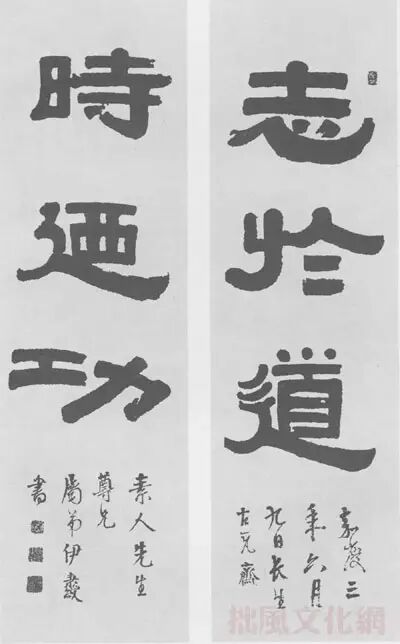 志於道
嘉慶三
年六月
九日長生
古瓦齋
時迺功
素人先生
尊兄
屬弟伊秉綬
書
拙風文化網